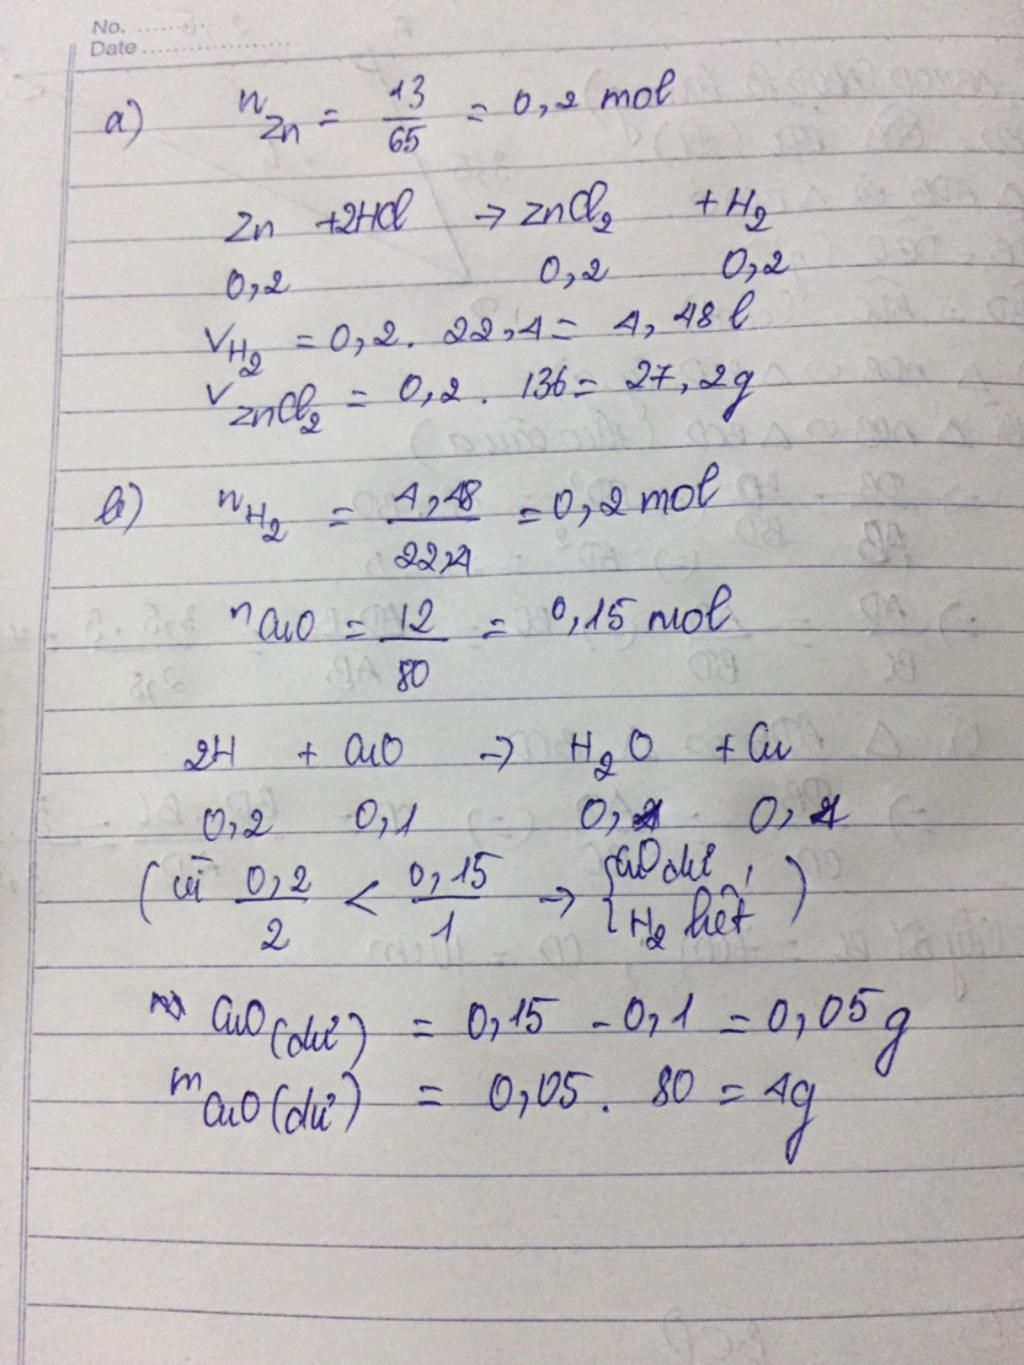 No. ..........
Date ......................
a) nZn = 13/65 = 0,2 mol
Zn +2HCl → ZnCl2 + H2
0,2 0,2 0,2
VH2 = 0,2. 22,4 = 4,48 l
VZnCl2 = 0,2 . 136 = 27,2g
b) nH2 = 4,48/22,4 = 0,2 mol
nCuO = 12/80 = 0,15 mol
2H + CuO → H2O + Cu
0,2 0,1 0,1 0,1
(vì 0,2/2 < 0,15/1 → { CuO dư,
H2 hết )
CuO(dư) = 0,15 - 0,1 = 0,05 g
mCuO(dư) = 0,05 . 80 = 4g